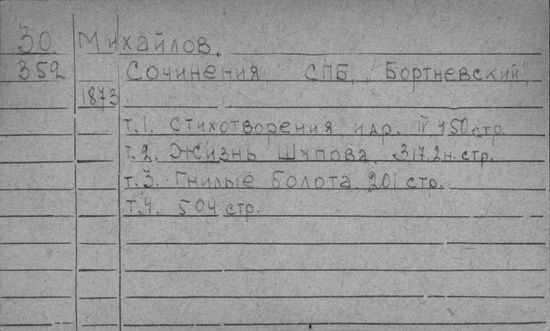 30 Михайлов.
352 Сочинения. СПБ, "Бортневский",
1873.
т.1. Стихотворения и др. IV 450 стр.
т.2. Жизнь Шупова. 317.2н. стр.
т.3. Гнилые болота. 201 стр.
т.4. 504 стр.